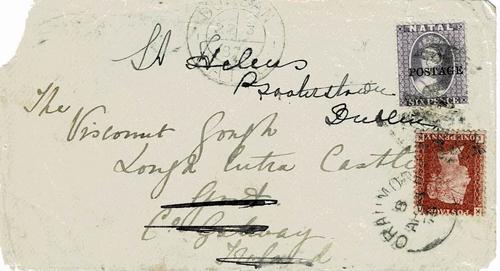 DURBAN
NATAL
POSTAGE
SIXPENCE
St Helens
Booterstown
Dublin
The
Viscount Gough
Lough Cutra Castle
Gort
Co Galway
Ireland
ONE PENNY
POSTAGE